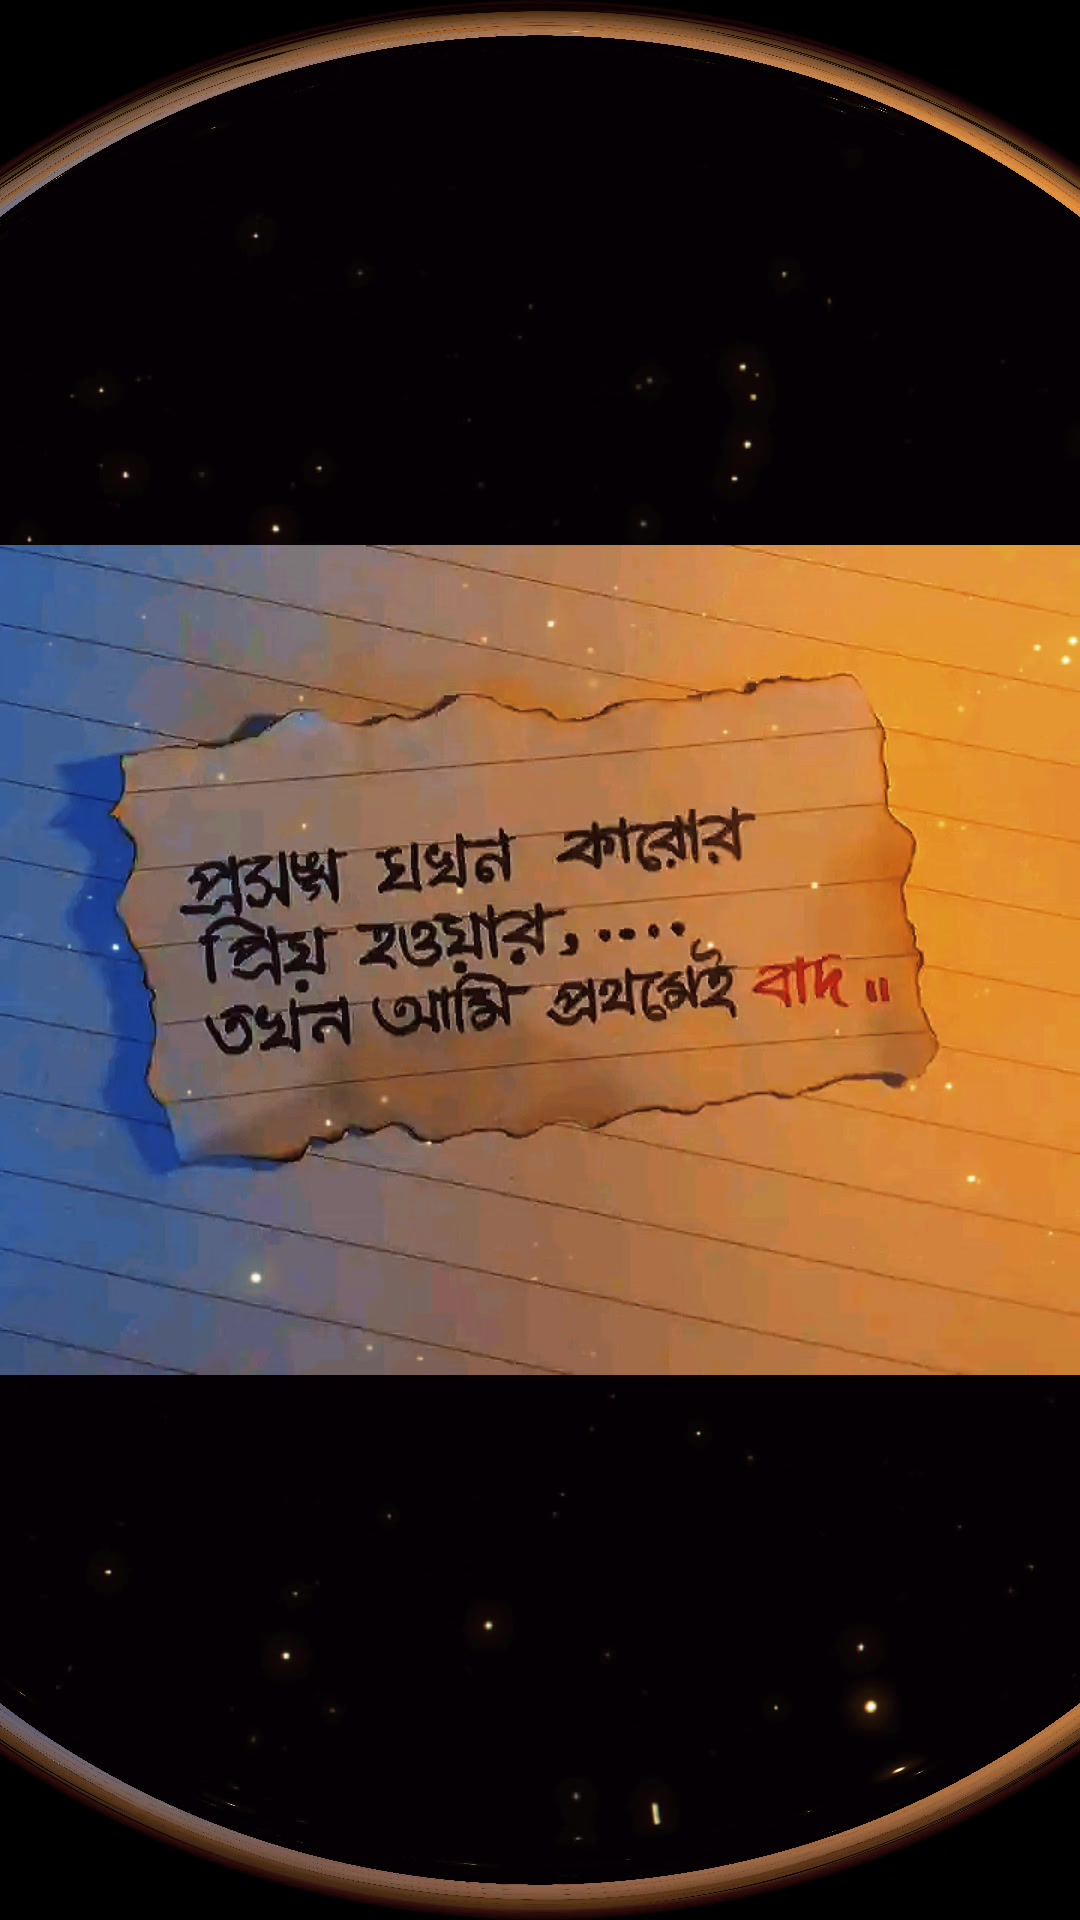 প্রসঙ্গ যখন কারোর
প্রিয় হওয়ার,....
তখন আমি প্রথমেই বাদ॥